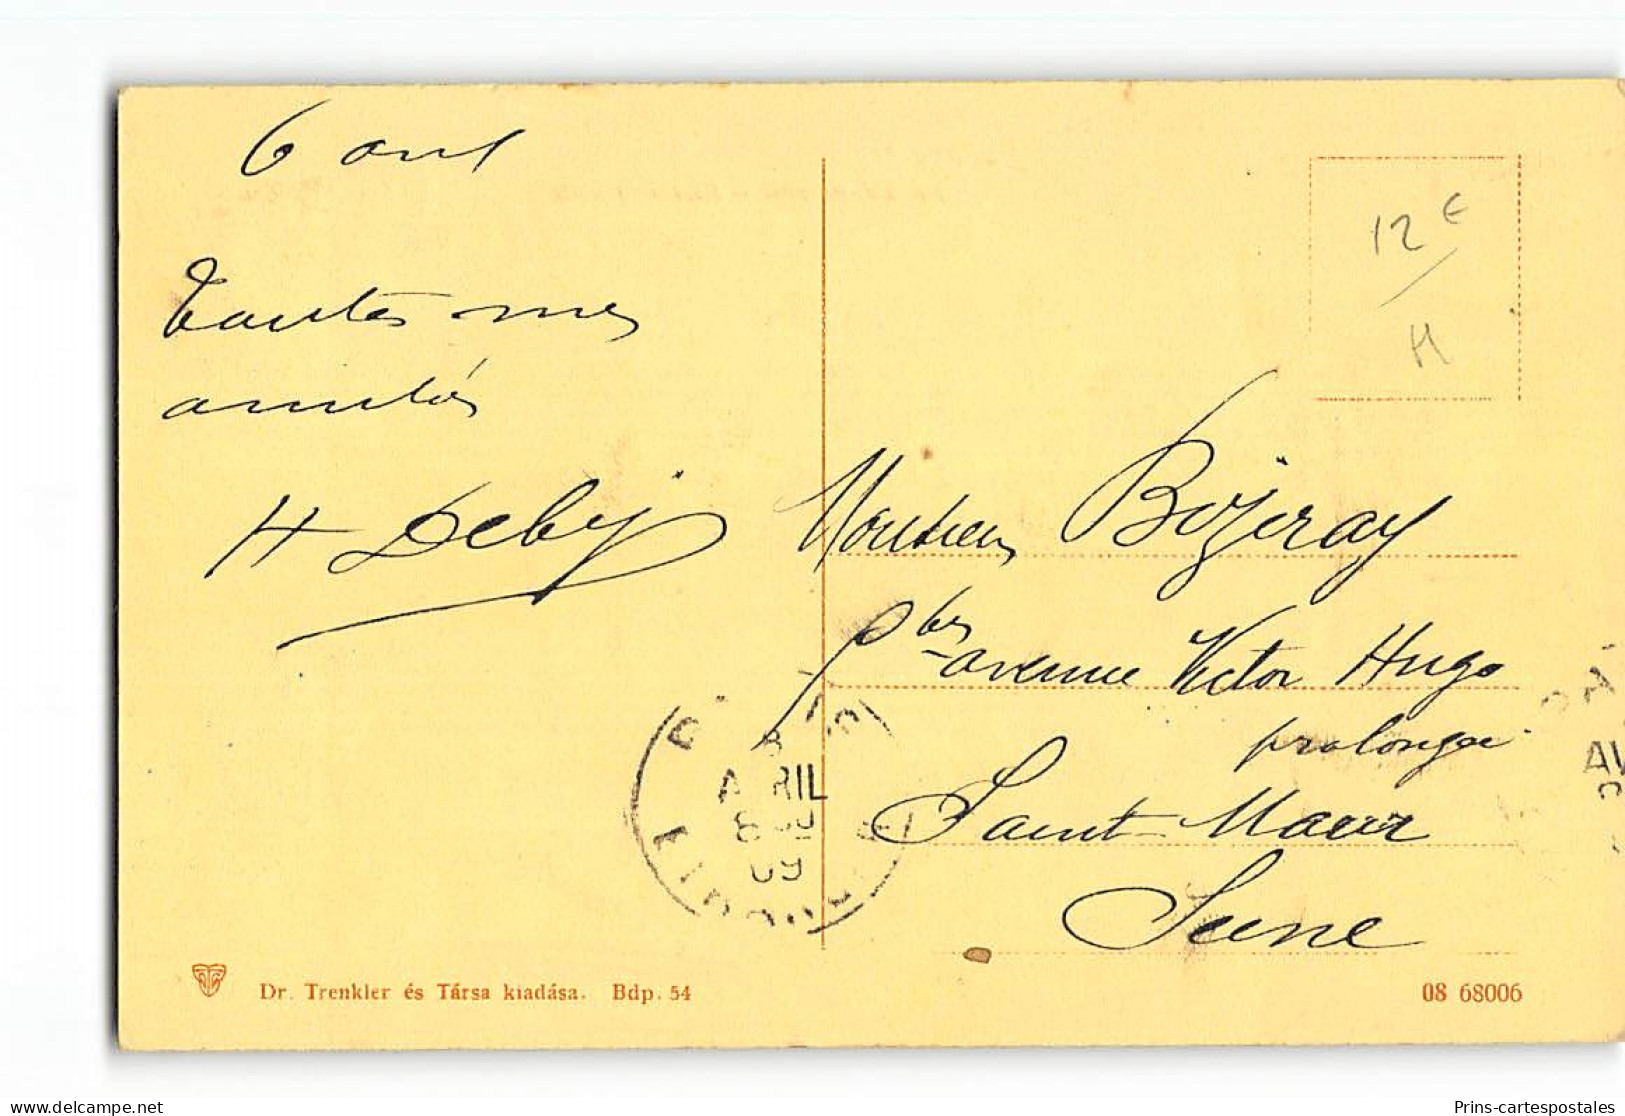 6 avril
Toutes mes
amitiés
H Deby
12 €
H
Monsieur Bizeray
bis
avenue Victor Hugo
prolongée
Saint-Maur
Seine
8
AVRIL
09
AV
Dr. Trenkler és Társa kiadása. Bdp. 54
08 68006
delcampe.net
Prins-cartespostales